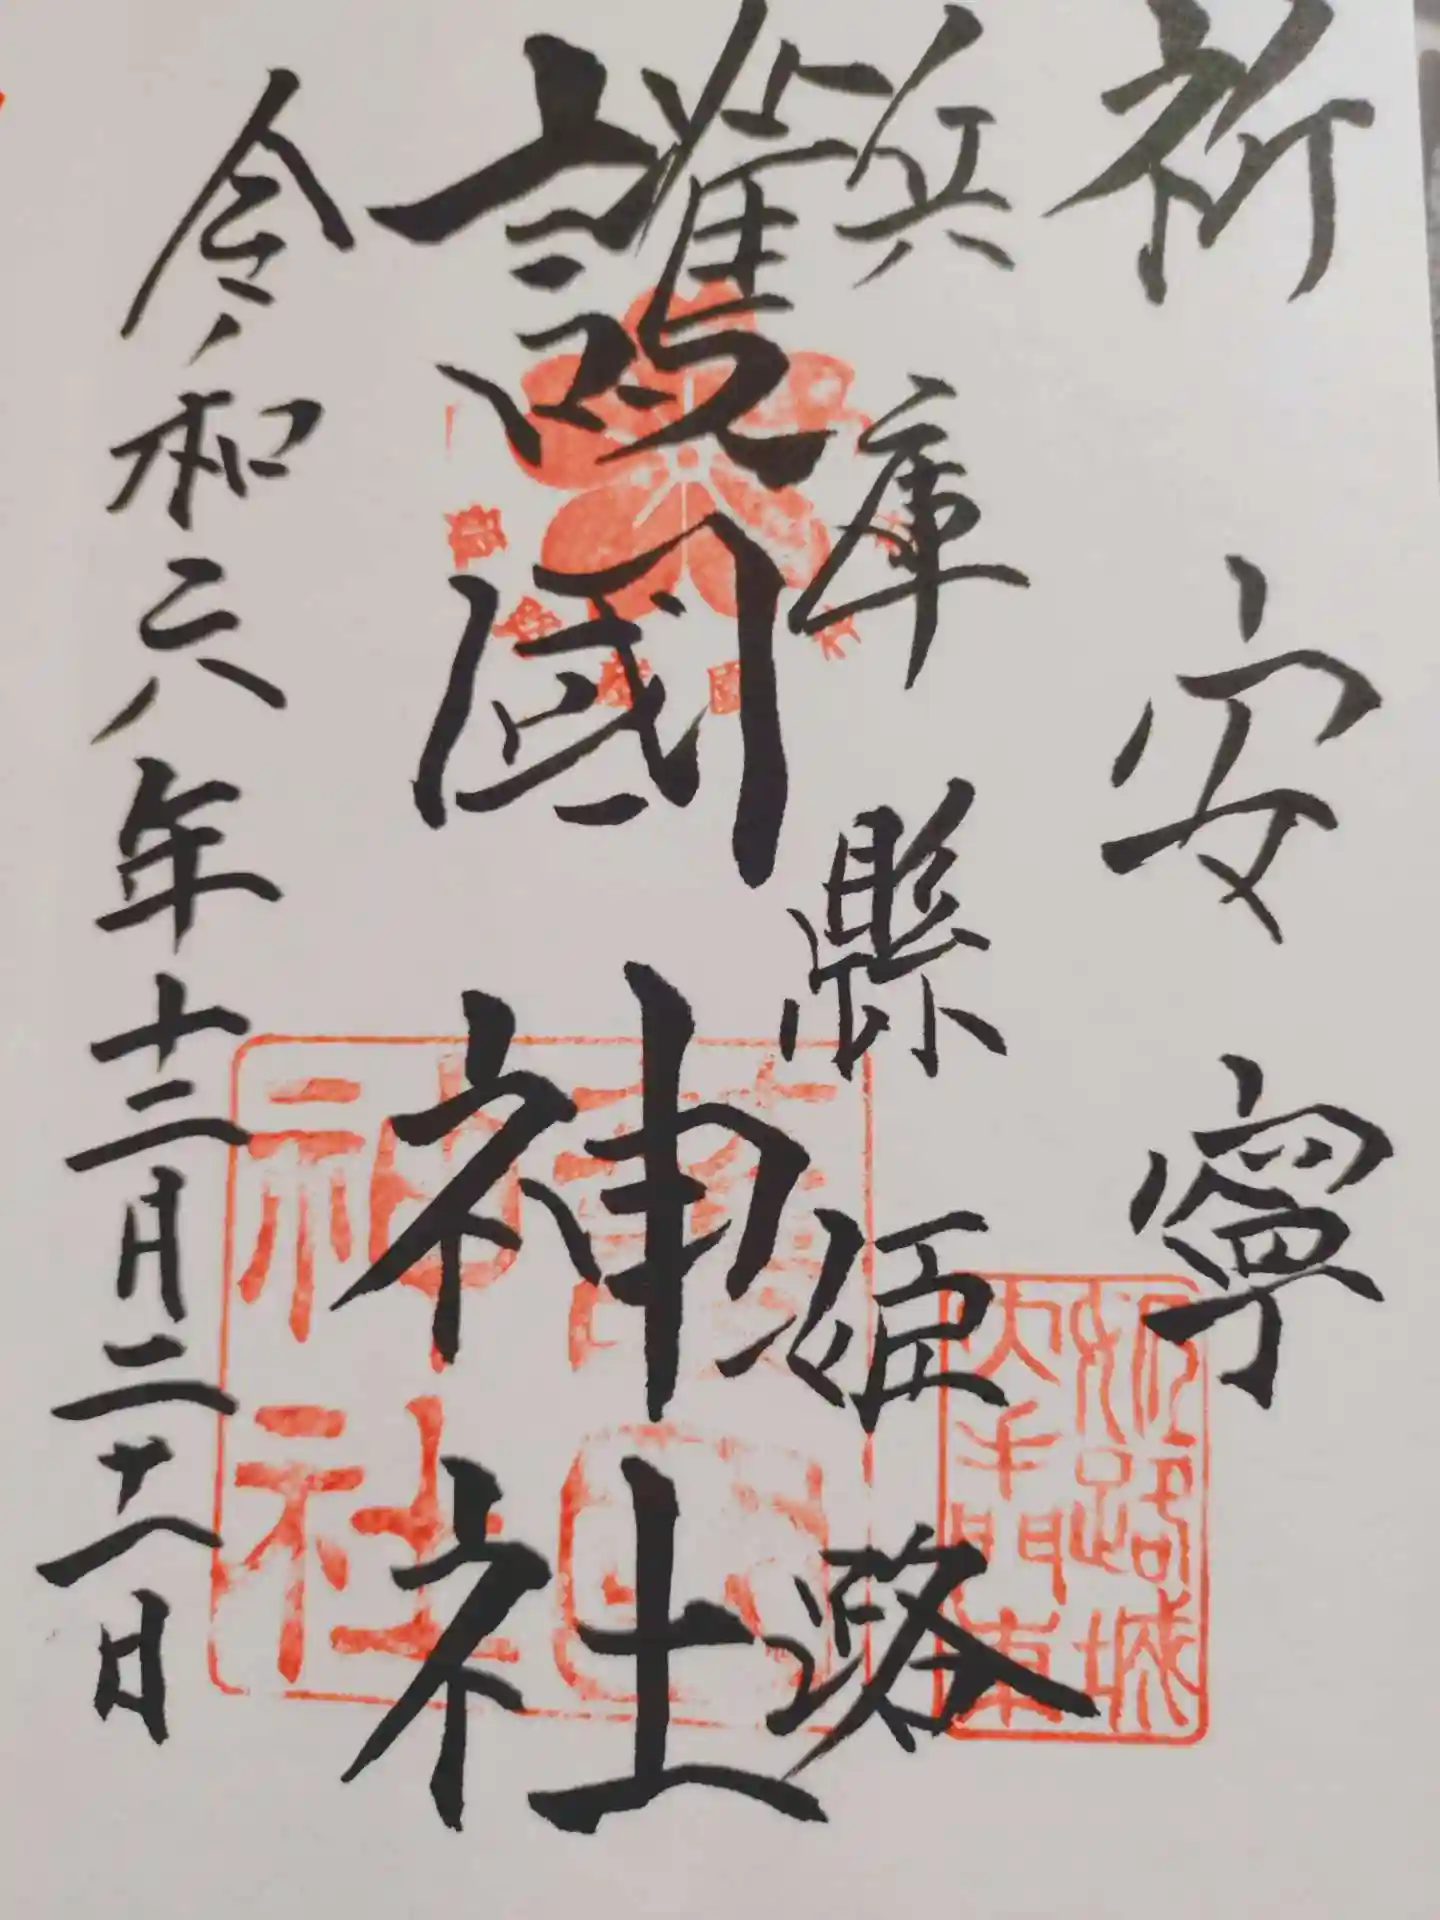 祈安寧
兵庫縣姫路
護國神社
令和六年十二月二十八日
姫路城
大手門東
神社